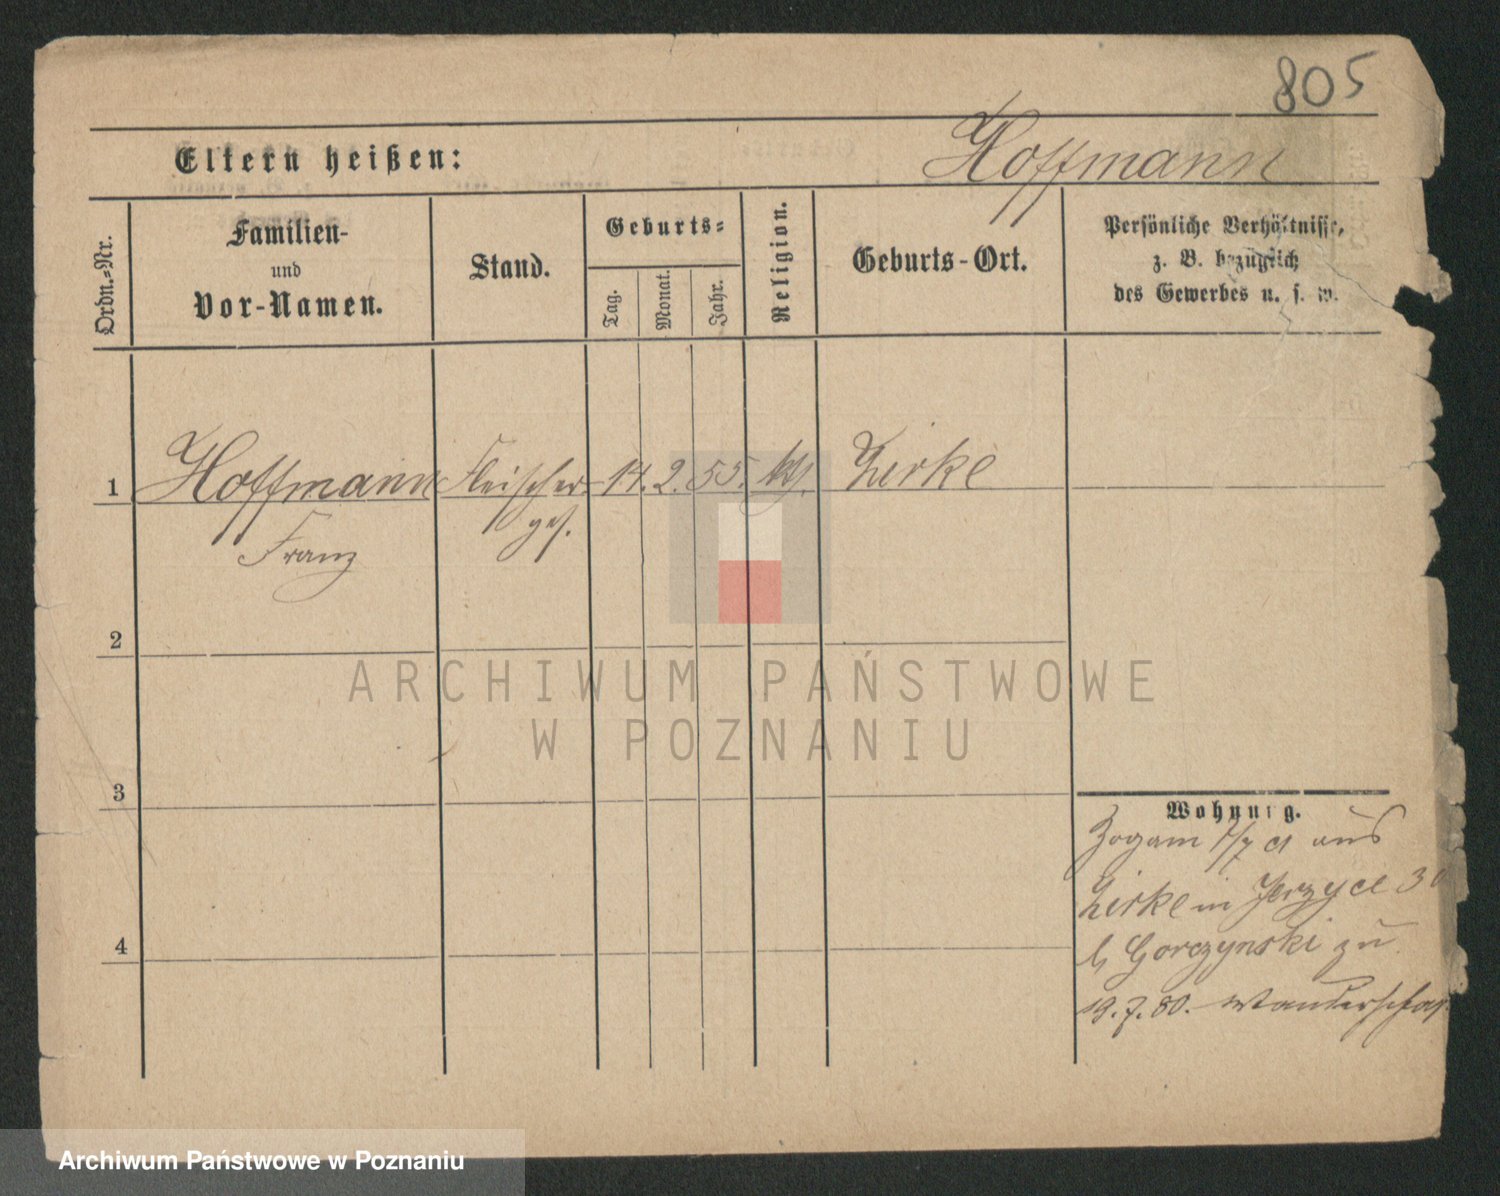 805
Eltern heißen:
Hoffmann
Ordn.-Nr.
Familien-
und
Vor-Namen.
Stand.
Geburts-
Tag.
Monat.
Jahr.
Religion.
Geburts-Ort.
Persönliche Verhältnisse,
z. B. bezüglich
des Gewerbes u. s. w.
1 Hoffmann Fleischer- 14. 2. 55. kth. Zirke
Franz ges.
2
ARCHIWUM PAŃSTWOWE
W POZNANIU
3
Wohnung.
Zog am 1/7 cr aus
Zirke in Jerzyce 30
b Gorczynski zu
4
19. 7. 80. Wanderschaf
Archiwum Państwowe w Poznaniu